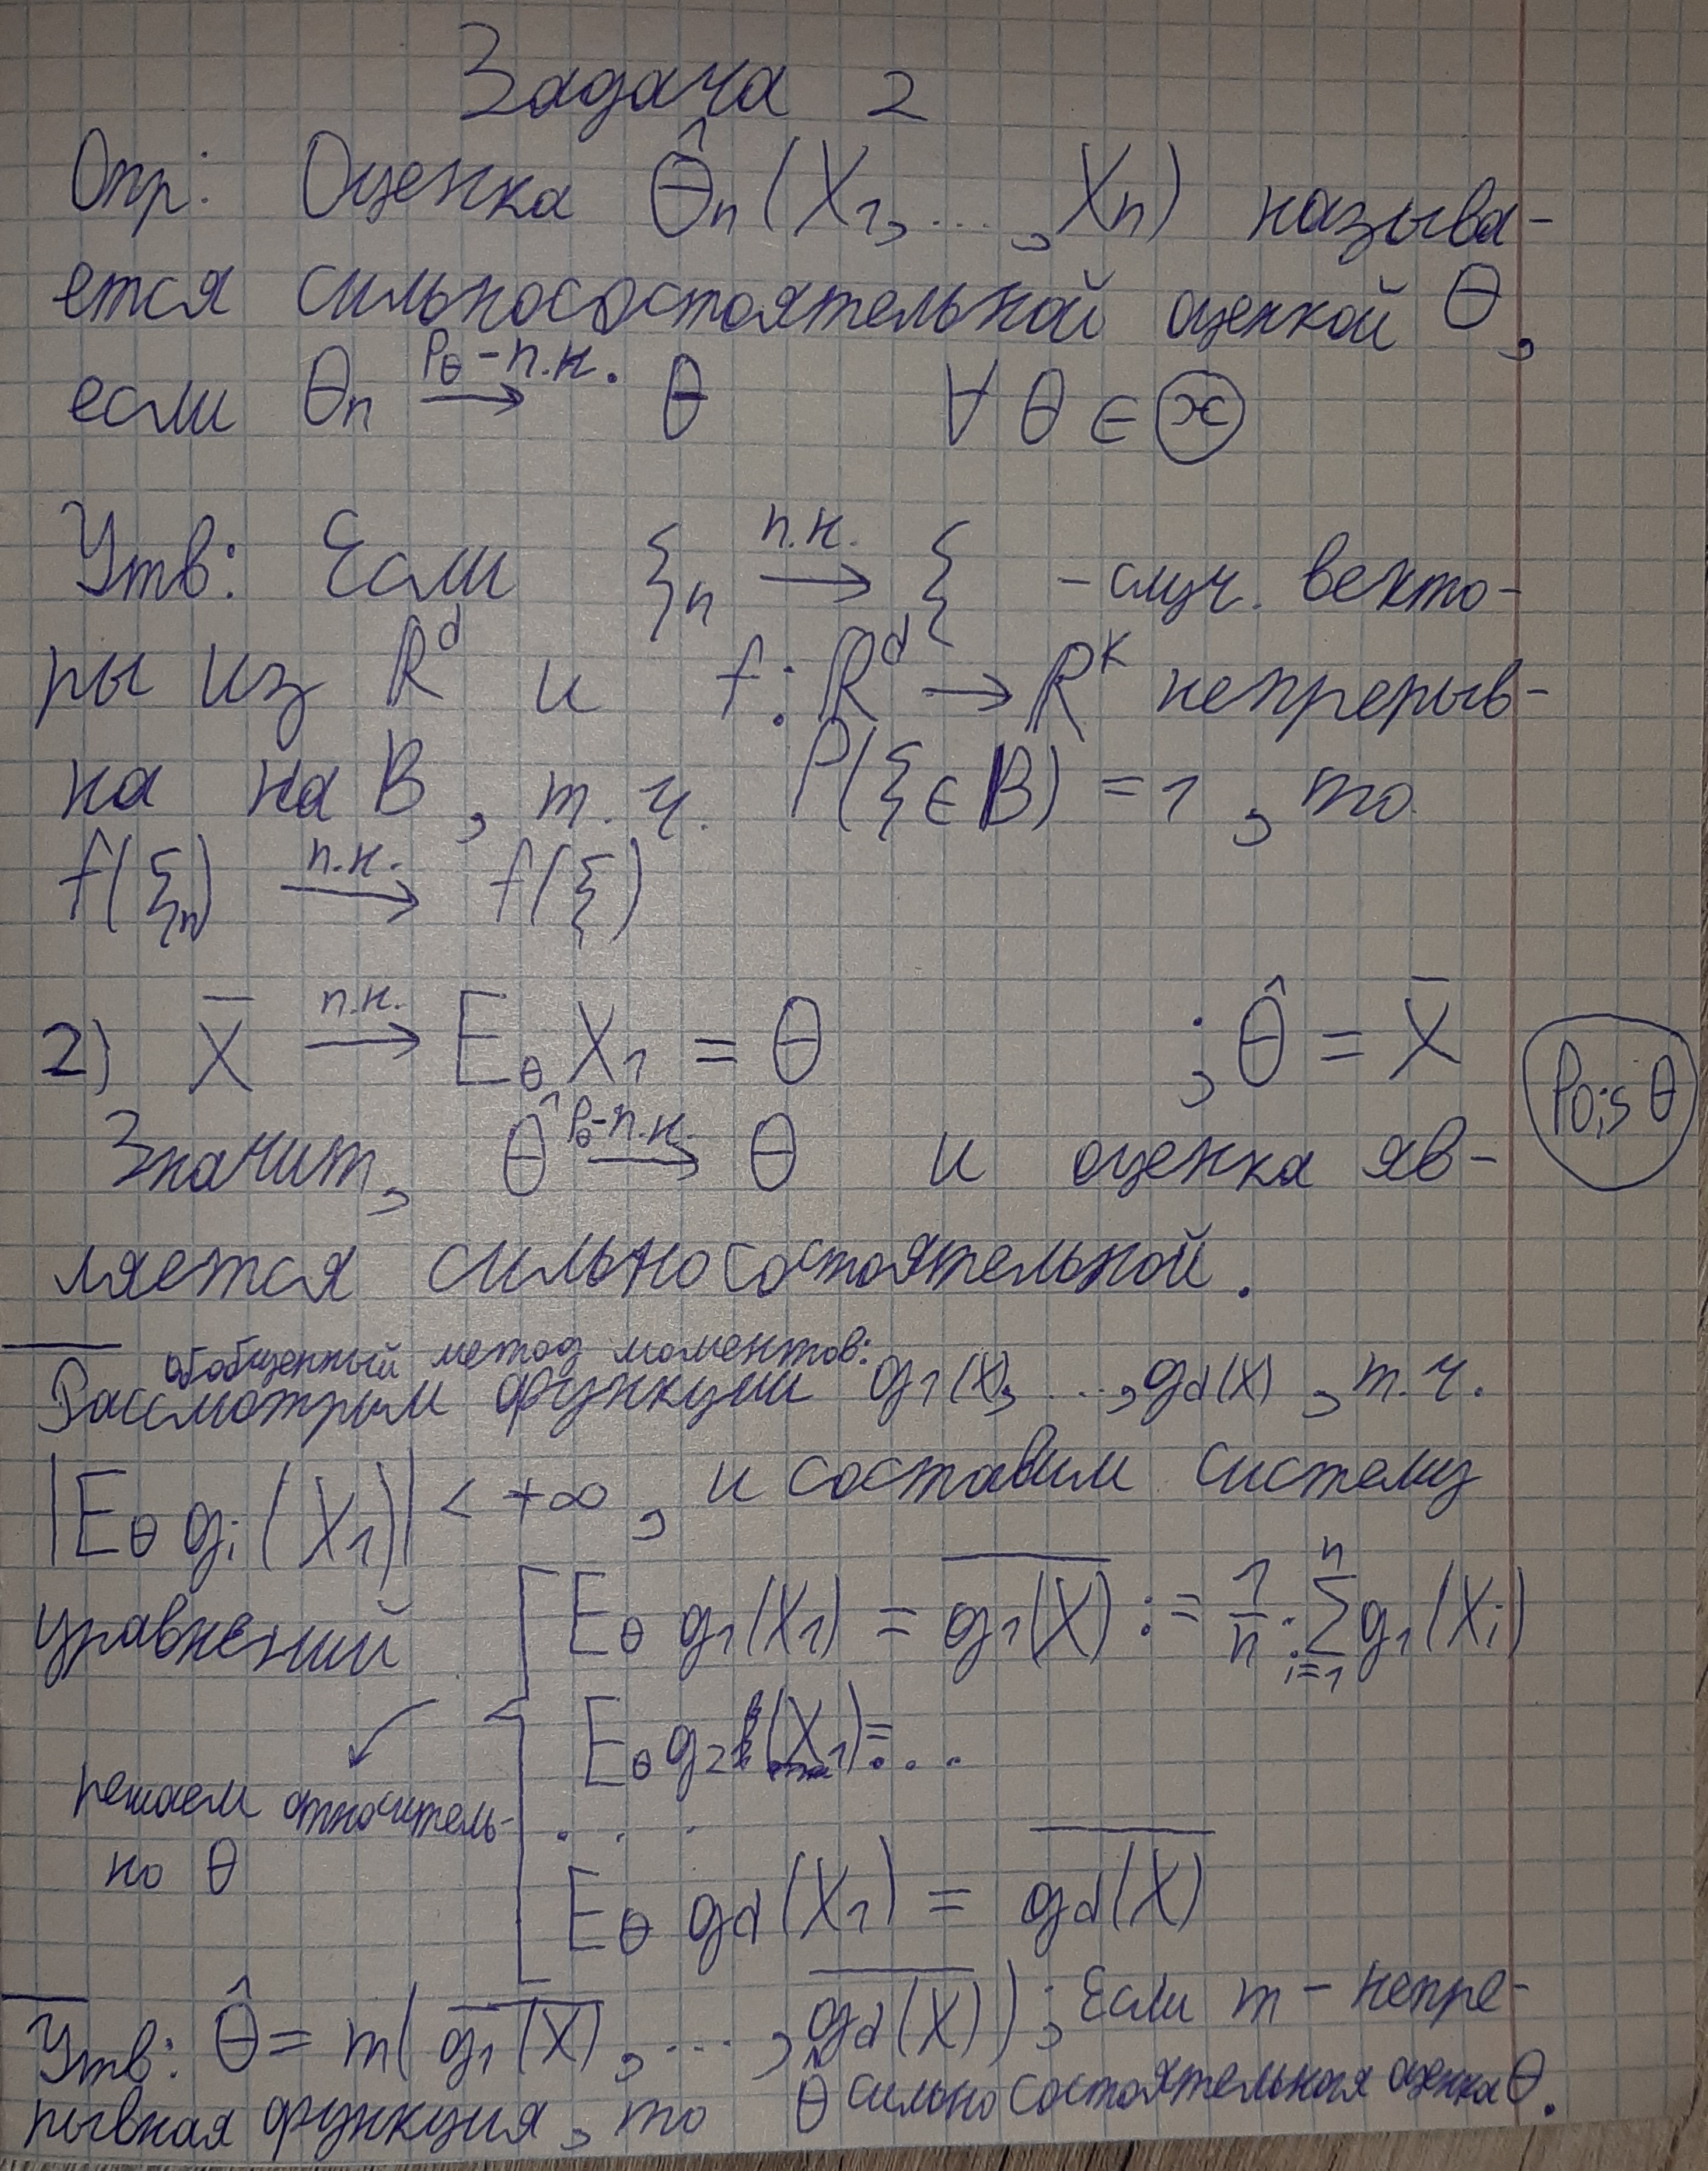 Задача 2
Опр: Оценка θ̂n (X1, ..., Xn) называ-
ется сильносостоятельной оценкой θ,
если θn Pθ-п.н. → θ ∀ θ ∈ Ⓗ
Утв: Если ξn п.н. → ξ - случ. векто-
ры из R^d и f: R^d → R^k непрерыв-
на на B, т.ч. P(ξ ∈ B) = 1, то
f(ξn) п.н. → f(ξ)
2) X̄ п.н. → Eθ X1 = θ ; θ̂ = X̄
Pois θ
Значит, θ̂ Pθ-п.н. → θ и оценка яв-
ляется сильносостоятельной.
обобщенный метод моментов:
Рассмотрим функции g1(x), ..., gd(x), т.ч.
|Eθ gi(X1)| < +∞, и составим систему
уравнений { Eθ g1(X1) = \overline{g1(X)} := 1/n · Σ_{i=1}^{n} g1(Xi)
Eθ g2(X1) = ...
решаем относитель-
но θ
...
Eθ gd(X1) = \overline{gd(X)}
Утв: θ̂ = m(\overline{g1(X)}, ..., \overline{gd(X)}); Если m - непре-
рывная функция, то θ̂ сильно состоятельная оценка θ.